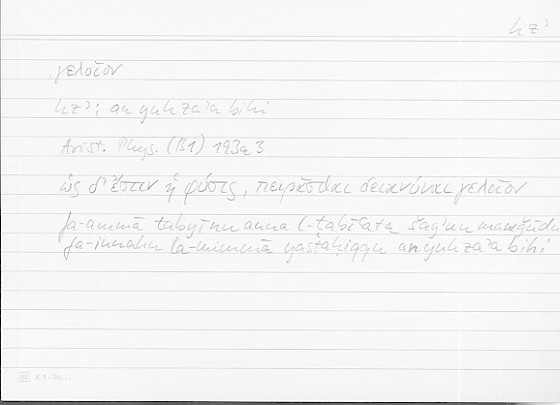 hzʾ
γελοῖον
hzʾ; an yuhzaʾa bihi
Arist. Phys. (B1) 193a3
ὡς δ' ἔστιν ἡ φύσις, πειρᾶσθαι δεικνύναι γελοῖον
fa-ammā tabyīnu anna l-ṭabīʿata šayʾun mawǧūdun
fa-innahu la-mimmā yastaḥiqqu an yuhzaʾa bihi